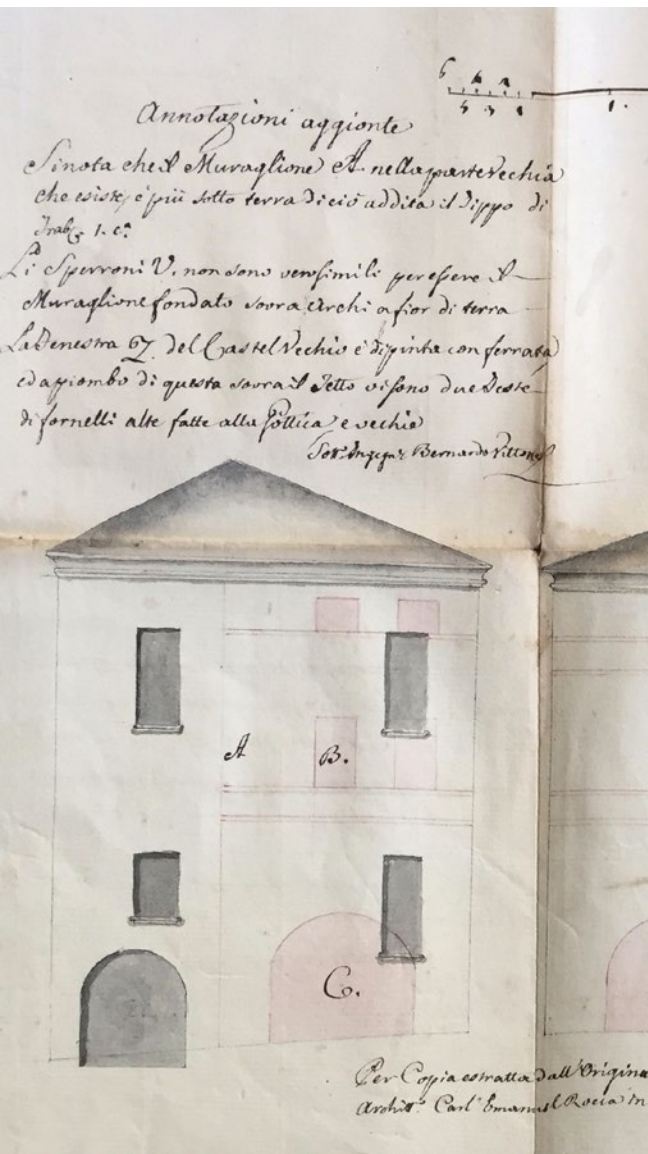 6 4 2
5 3 1 1.
Annotazioni aggionte
Si nota che il Muraglione A. nella parte Vechia
che esiste, è più sotto terra di ciò addita il Tippo di
Trab. 1. c.a
Li Sperroni V. non sono verosimili per essere il
Muraglione fondato sovra archi a fior di terra
La Fenestra del Castel Vechio è dipinta con ferrata
ed a piombo di questa sovra il Tetto vi sono due Teste
di fornelli alte fatte alla Gottica e vechie
Sott. Ingegn.r Bernardo Vittone
A B.
C.
Per Copia estratta dall'Origina
Archit.o Carl' Emanuel Rocca in